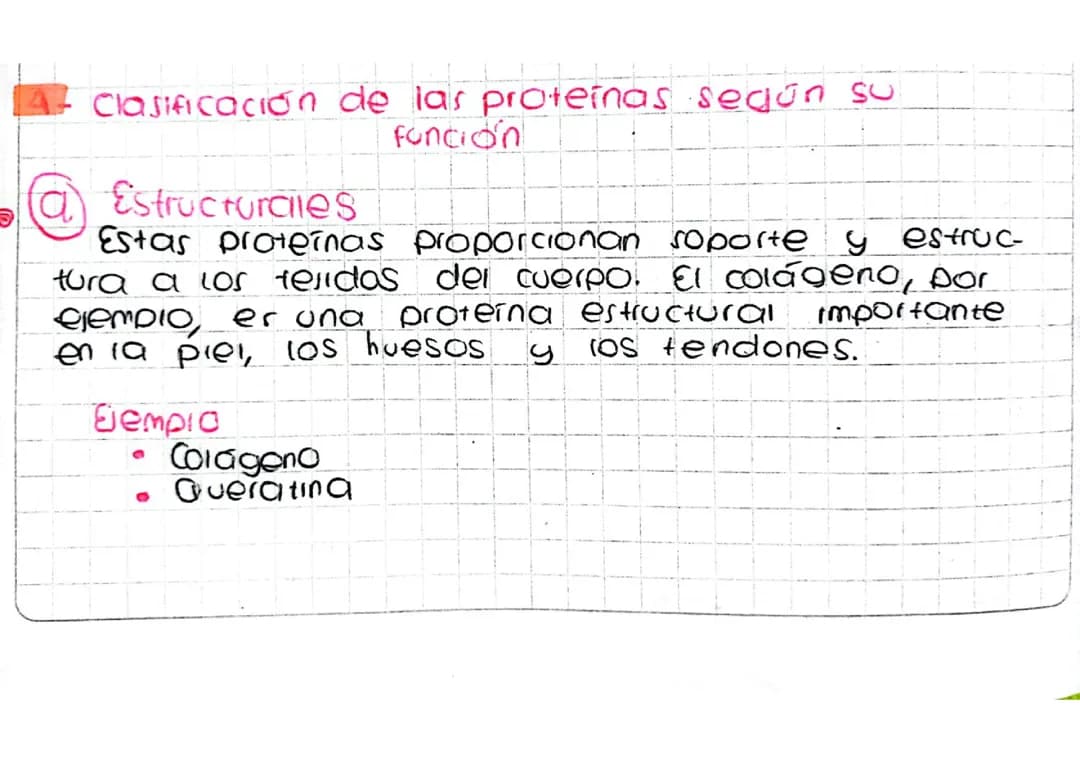 4- Clasificación de las proteínas según su
función
a Estructurales
Estas proteínas proporcionan soporte y estruc-
tura a los tejidos del cuerpo. El colágeno, por
ejemplo, es una proteína estructural importante
en la piel, los huesos y los tendones.
Ejemplo
• Colágeno
• Queratina